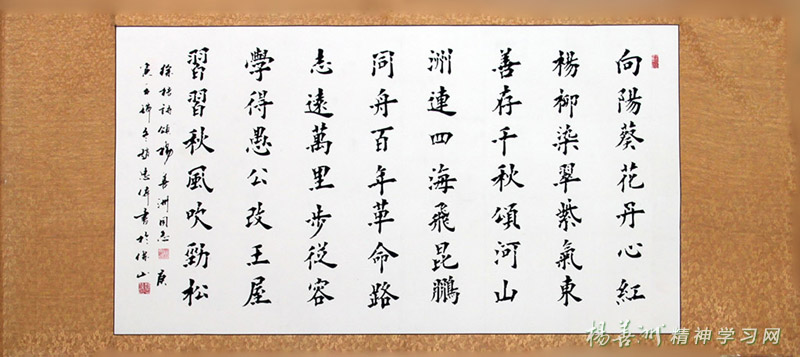 向陽葵花丹心紅
楊柳染翠紫氣東
善存千秋頌河山
洲連四海飛昆鵬
同舟百年革命路
志遠萬里步從容
學得愚公改王屋
習習秋風吹勁松
徐樁詩頌楊善洲同志 庚
寅 書於保山
楊善洲精神学习网